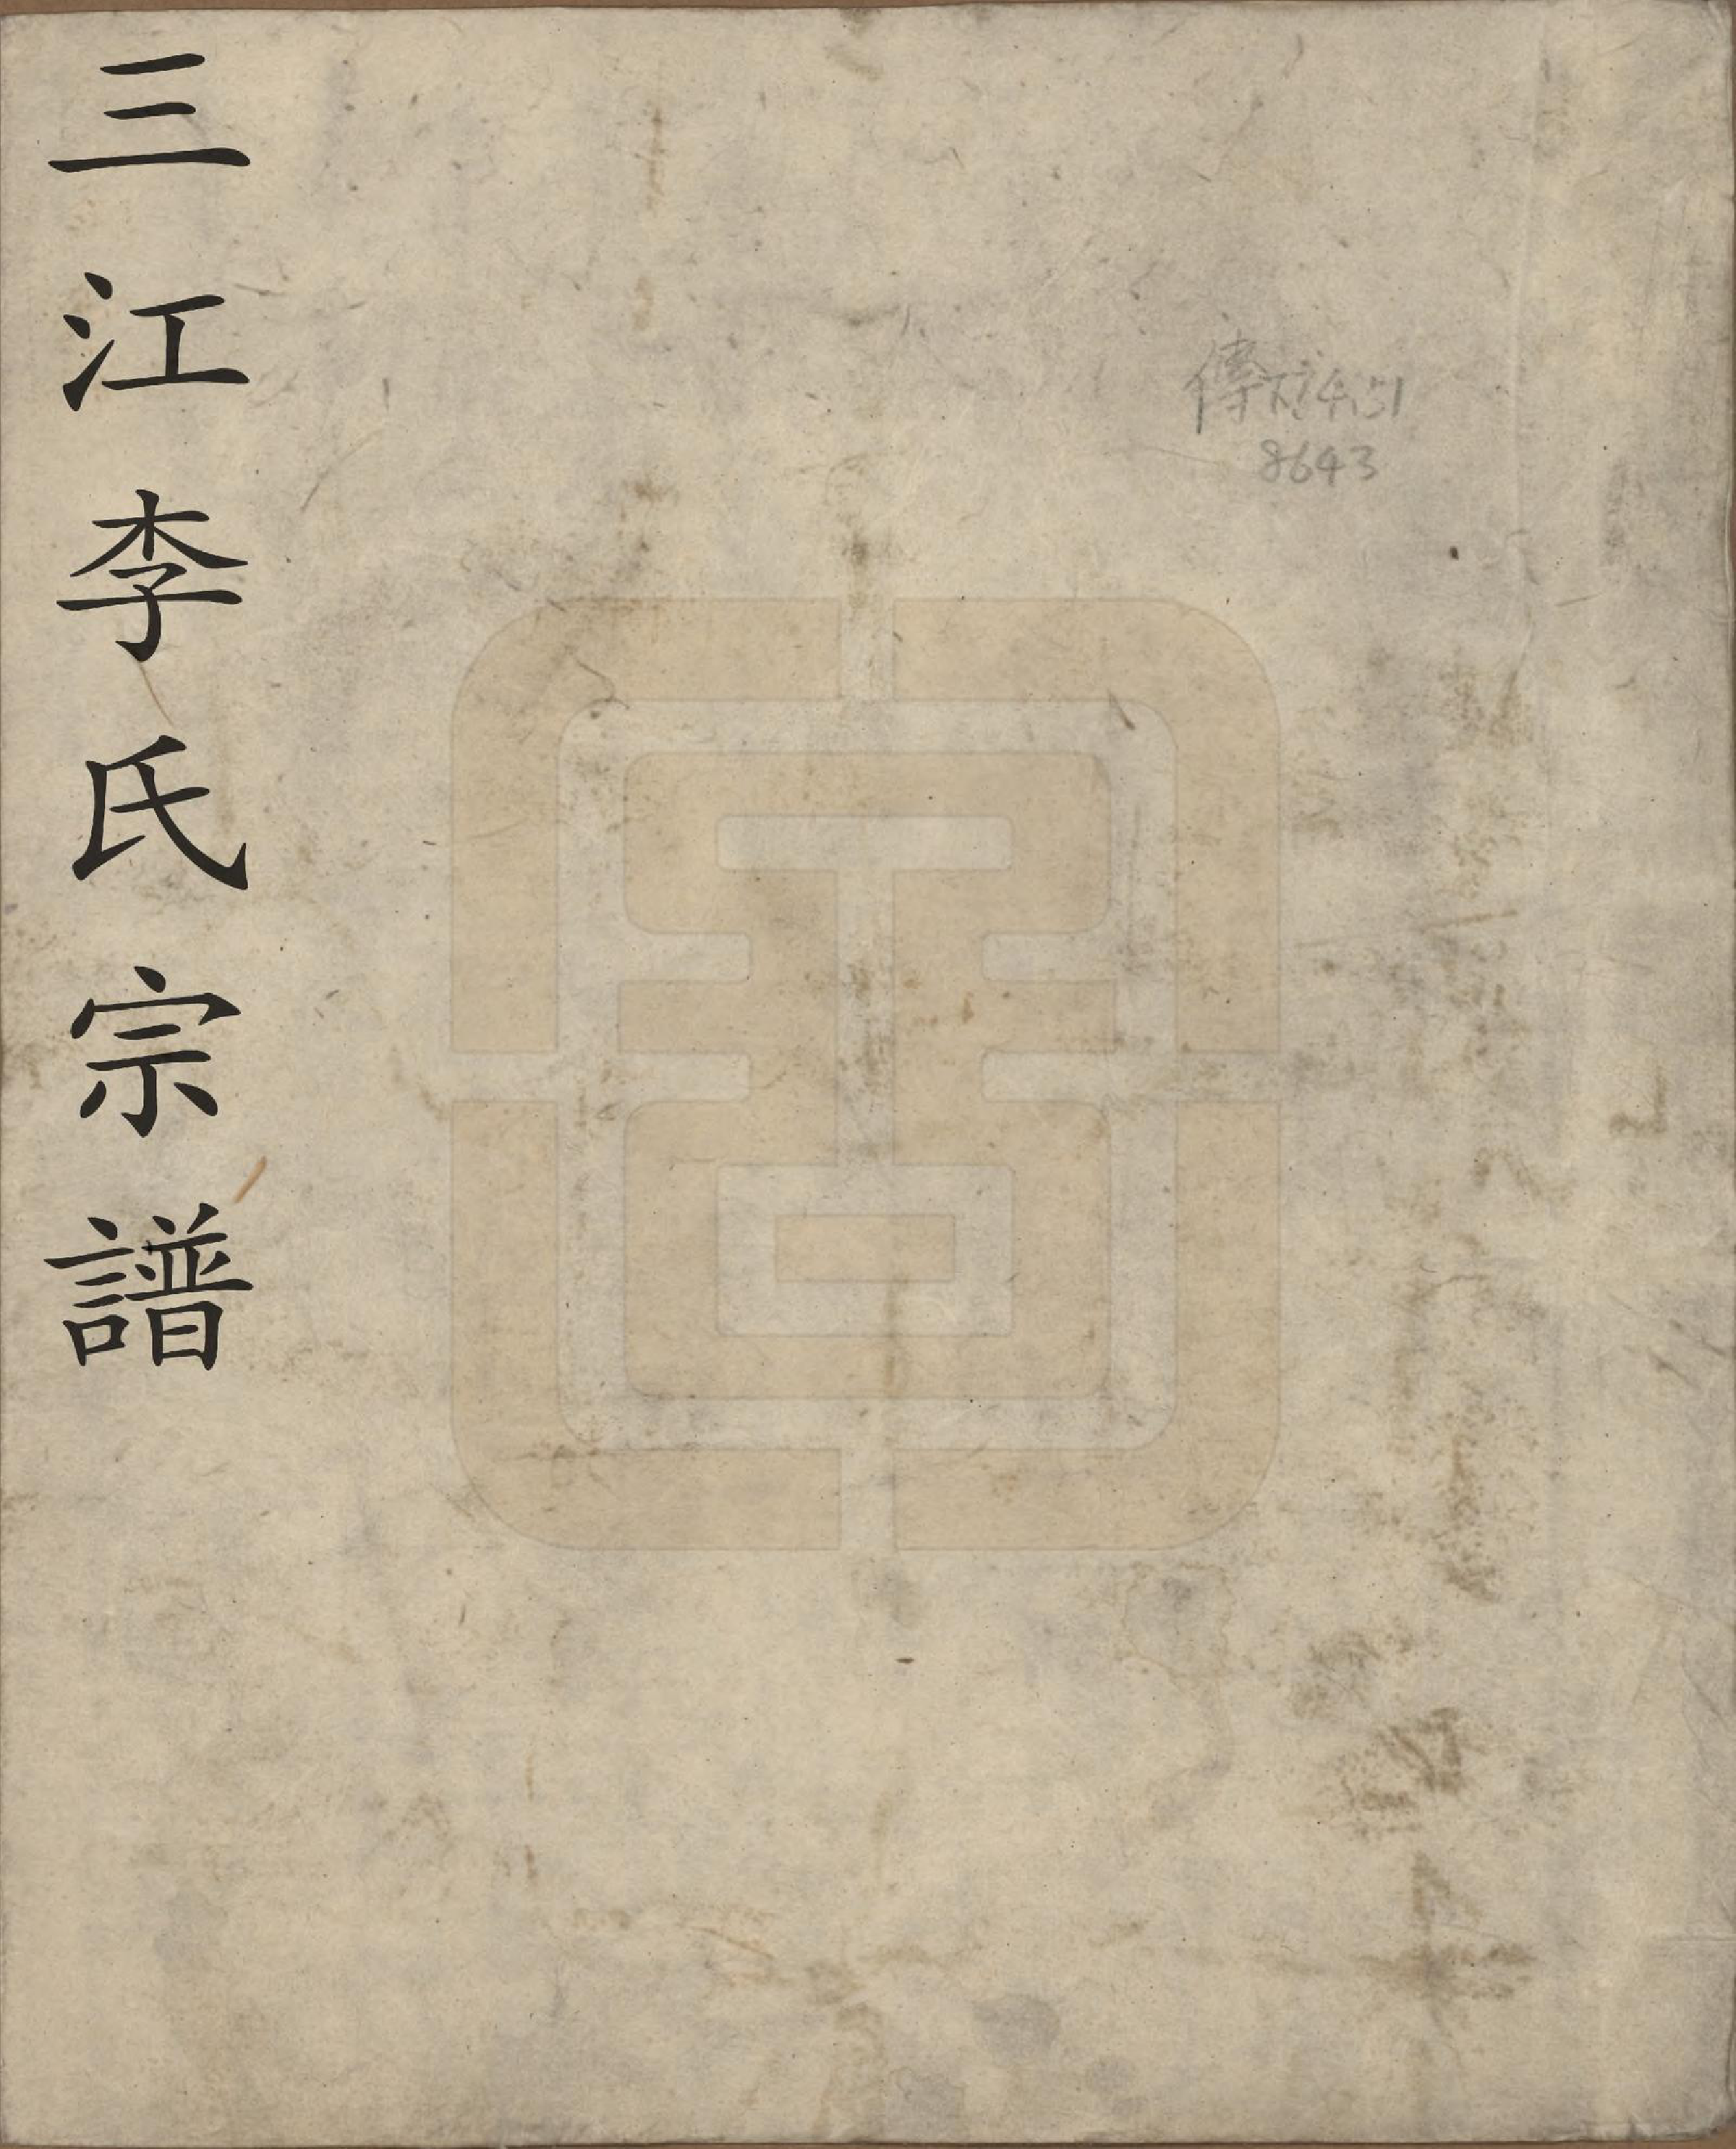 三江李氏宗譜
8643